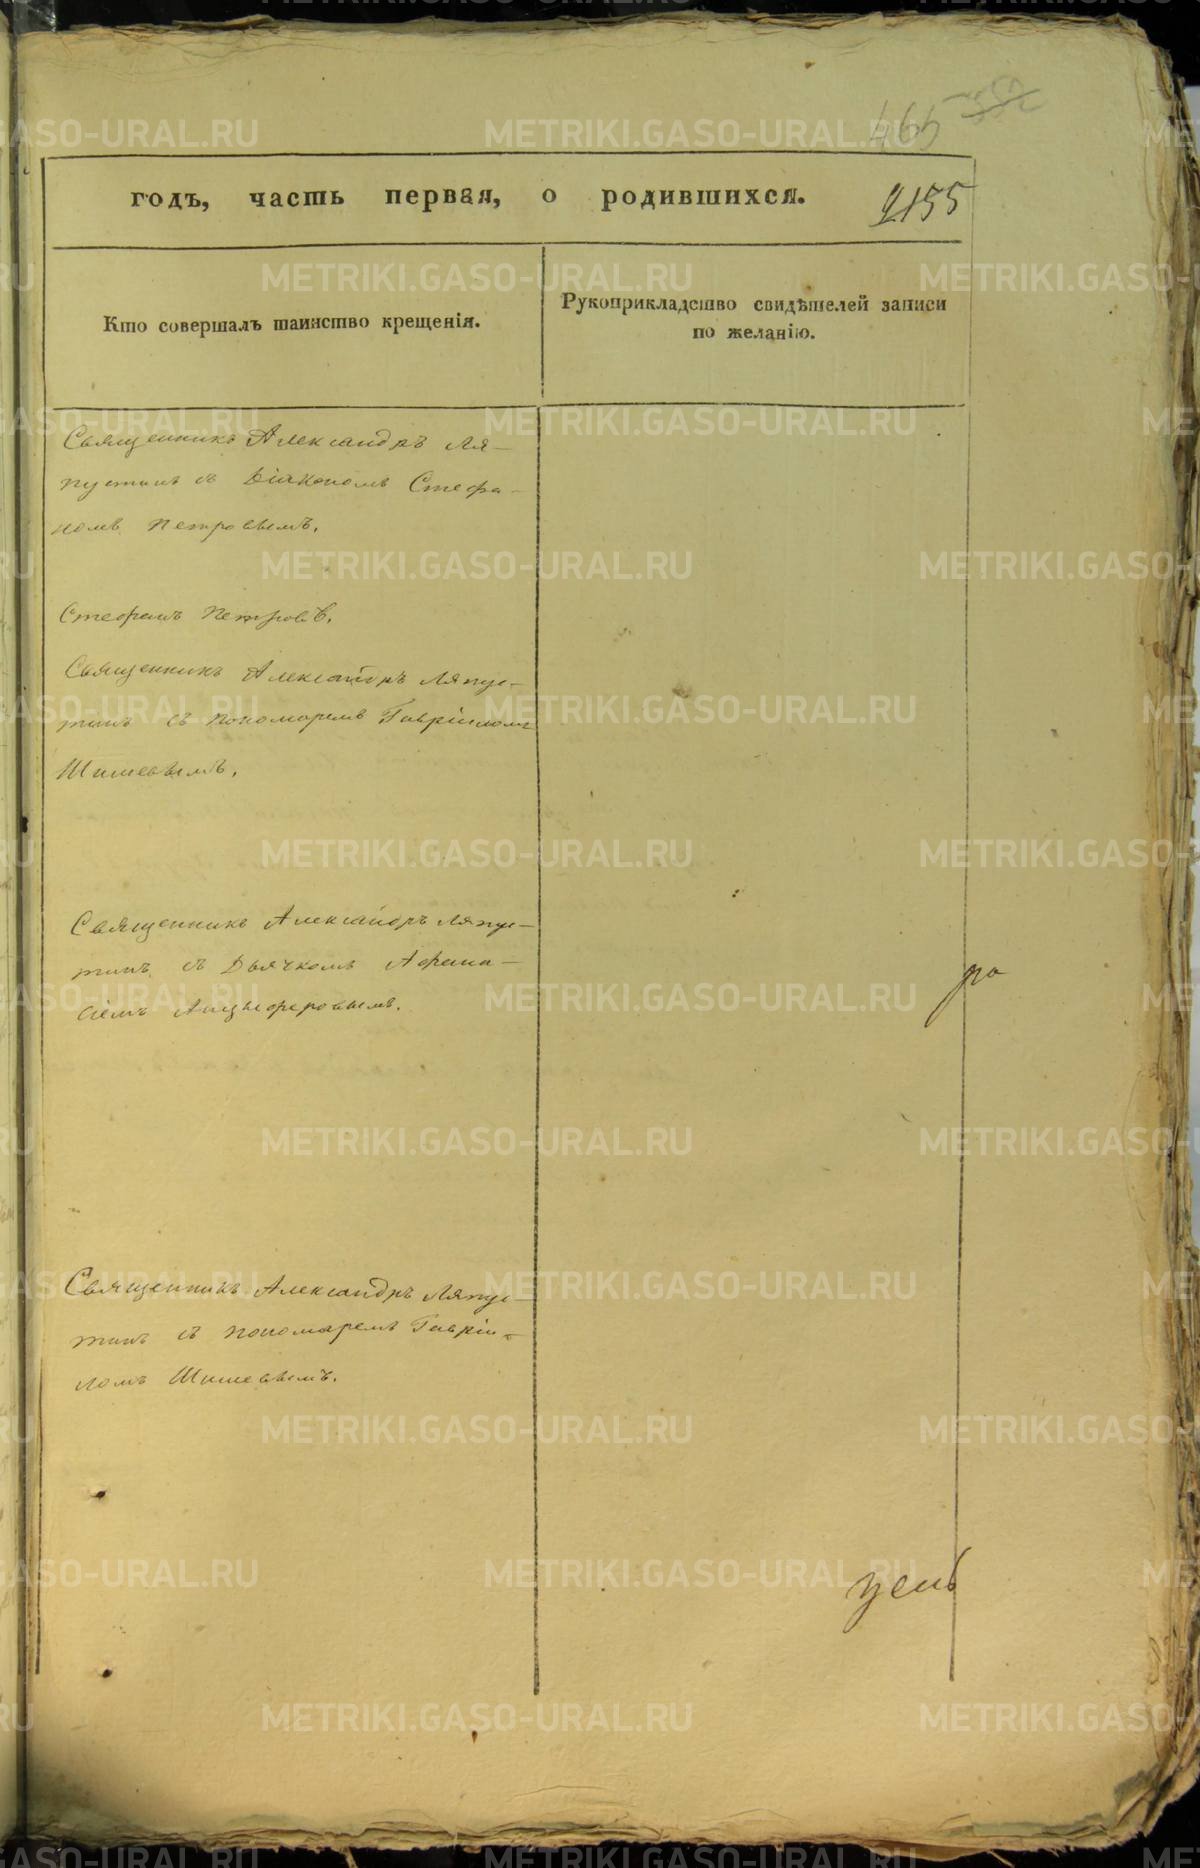 465 552
годъ, часть первая, о родившихся. 2155
Кто совершалъ таинство крещенія.
Рукоприкладство свидѣтелей записи
по желанію.
Священникъ Александръ Ля-
пустинъ съ Діакономъ Стефа-
номъ Петровымъ.
Стефанъ Петровъ.
Священникъ Александръ Ляпус-
тинъ съ пономаремъ Гавріиломъ
Шишевымъ.
Священникъ Александръ Ляпус-
тинъ съ Дьячкомъ Афана-
сіемъ Анцыферовымъ.
ра
Священникъ Александръ Ляпус-
тинъ съ пономаремъ Гавріи-
ломъ Шишевымъ.
METRIKI.GASO-URAL.RU